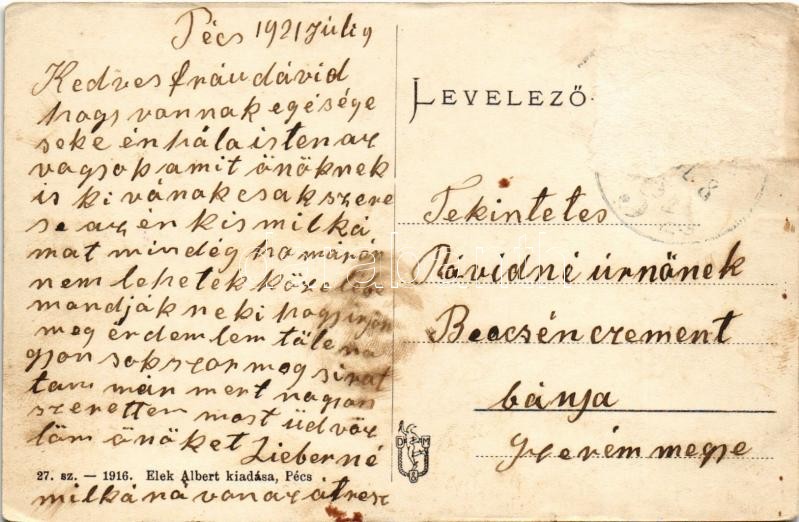 Pécs 1921 Júli 9
Kedves fráu dávid
hogs vannak egésége
seke én hála isten az
vagsok amit önöknek
is ki vánok csak szere
se az én kis milká
mat mindég ha márár
nem lehetek köz
mondják neki hogs irjon
meg érdemlem tüle na
gson sokszor meg sirat
tam mán mert nagson
szerettem most üdvöz
löm önöket Lieberné
27. sz. — 1916. Elek Albert kiadása, Pécs
milkáná van az átresz
LEVELEZŐ-
Tekintetes
Dávidné úrnőnek
Beocsén czement
bánja
Szerém megse
D M